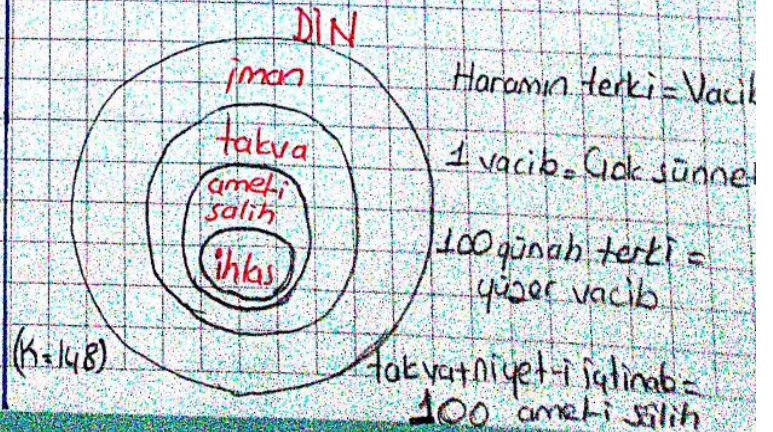 DIN
iman
takva
ameli
salih
ihlas
(K=148)
Haramın terki = Vacib
1 vacib = Çok sünnet
100 günah terki =
yüzer vacib
takva+niyet-i içtinab =
100 amel-i sâlih